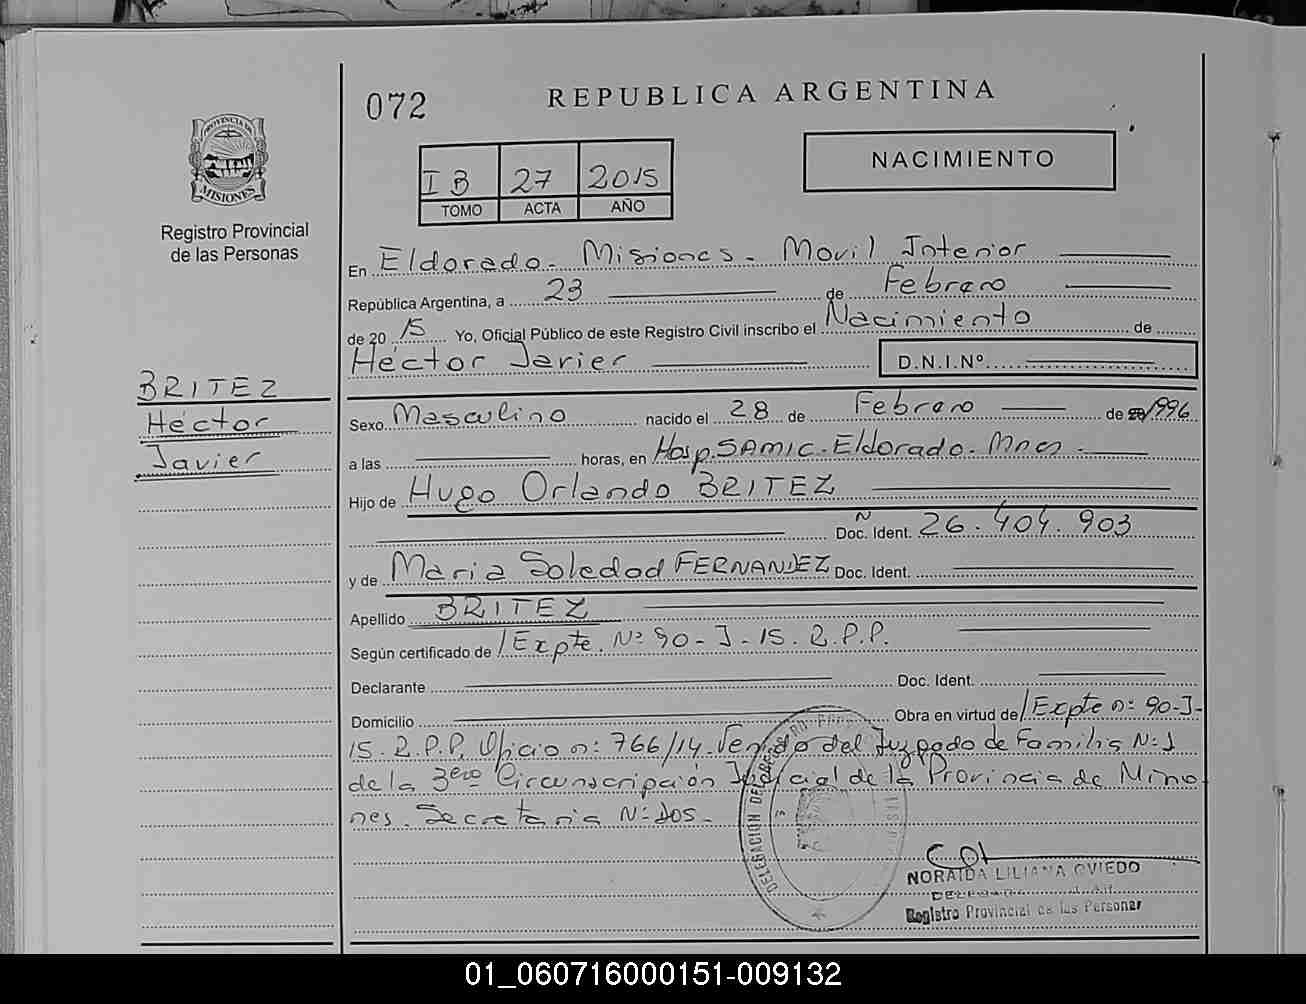 072
REPUBLICA ARGENTINA
PROVINCIA DE
MISIONES
Registro Provincial
de las Personas
NACIMIENTO
I B 27 2015
TOMO ACTA AÑO
En Eldorado - Misiones - Movil Interior
República Argentina, a 23 de Febrero
de 20 15 Yo, Oficial Público de este Registro Civil inscribo el Nacimiento de
Héctor Javier D.N.I.Nº
BRITEZ
Héctor
Javier
Sexo Masculino nacido el 28 de Febrero de 1996
a las horas, en Hosp. SAMIC - Eldorado - Mnes -
Hijo de Hugo Orlando BRITEZ
Doc. Ident. 26.404.903
y de Maria Soledad FERNANDEZ Doc. Ident.
Apellido BRITEZ
Según certificado de /Expte. Nº 90-J-15. R.P.P.
Declarante Doc. Ident.
Domicilio Obra en virtud de /Expte nº 90-J-
15. R.P.P. Oficio nº 766/14. Venido del Juzgado de Familia Nº 1
de la 3era Circunscripción Judicial de la Provincia de
Secretaria Nº Dos.
DELEGACIÓN DEL
NORAIDA LILIANA OVIEDO
Registro Provincial de las Personas
01_060716000151-009132